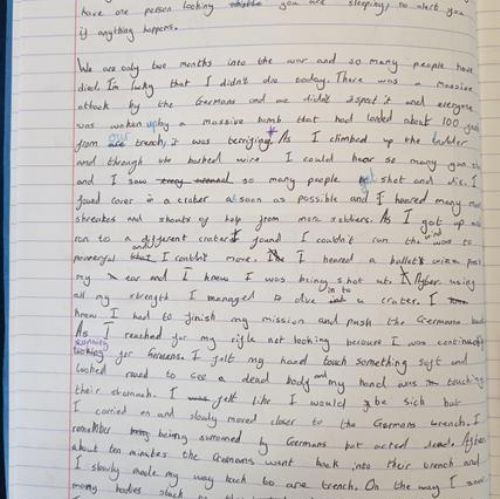 have one person looking you are sleeping, to alert you
if anything happens.
We are only two months into the war and so many people have
died. I'm lucky that I didn't die today. There was a massive
attack by the Germans and we didn't expect it and everyone
was woken up by a massive bomb that had landed about 100 yards
from our trench, it was terrifying. As I climbed up the ladder
and through the barbed wire I could hear so many gun
and I saw so many people get shot and die. I
found cover in a crater as soon as possible and I heared many
shreakes and shouts of help from more soldiers. As I got up
ran to a different crater I found I couldn't run the wind was to
powerful and I couldn't move. I heared a bullet past
my ear and I knew I was being shot at. After using
all my strength I managed to dive in to a crater. I
knew I had to finish my mission and push the Germans back
As I reached for my rifle not looking because I was continuously
running for Germans. I felt my hand touch something soft and
looked round to see a dead body and my hand was touching
their stomach. I felt like I would be sick but
I carried on and slowly moved closer to the Germans trench. I
remember being surrouned by Germans but acted dead. After
about ten minutes the Germans went back into their trench and
I slowly made my way back to are trench. On the way I saw
many bodies stuck